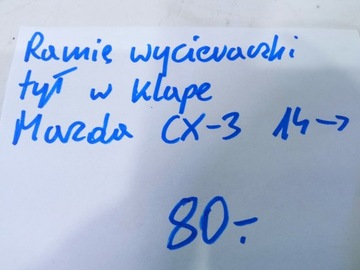 Ramię wycieraczki
tył w klapę
Mazda CX-3 14→
80.-